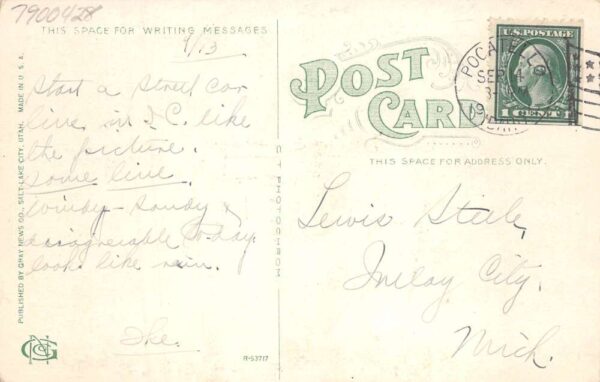 7900428
THIS SPACE FOR WRITING MESSAGES
9/13
Start a Street Car
line in I.C. like
the picture.
Some line.
Windy - Sandy &
disagreeable today.
looks like rain.
Ike.
PUBLISHED BY GRAY NEWS CO., SALT LAKE CITY, UTAH. MADE IN U.S.A.
R-53717
POST
CARD
THIS SPACE FOR ADDRESS ONLY.
POCATELLO
SEP 4
U.S. POSTAGE
1 CENT 1
Lewis Steele,
Imlay City,
Mich.